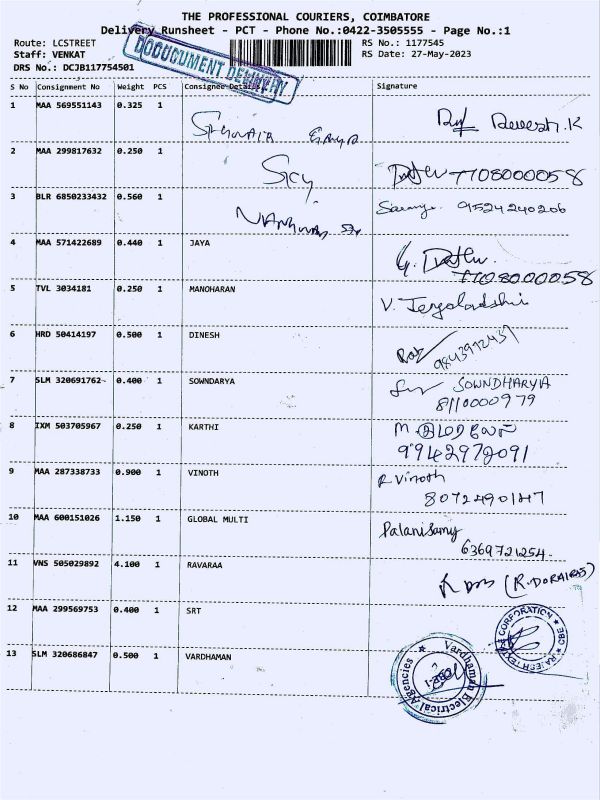 THE PROFESSIONAL COURIERS, COIMBATORE
Delivery Runsheet - PCT - Phone No.:0422-3505555 - Page No.:1
Route: LCSTREET RS No.: 1177545
Staff: VENKAT RS Date: 27-May-2023
DRS No.: DCJB117754501
DODUCUMENT DELIVERY
S No Consignment No Weight PCS Consignee Details Signature
1 MAA 569551143 0.325 1 Devesh.K
2 MAA 299817632 0.250 1 7708000058
3 BLR 6850233432 0.560 1 9524240206
4 MAA 571422689 0.440 1 JAYA
7708000058
5 TVL 3034181 0.250 1 MANOHARAN
6 HRD 50414197 0.500 1 DINESH 9843972437
7 SLM 320691762 0.400 1 SOWNDARYA SOWNDHARYIA
8110000979
8 IXM 503705967 0.250 1 KARTHI
9942972091
9 MAA 287338733 0.900 1 VINOTH R Vinoth
8072490147
10 MAA 600151026 1.150 1 GLOBAL MULTI Palanisamy
6369721254
11 VNS 505029892 4.100 1 RAVARAA (R.DORAIRAJ)
12 MAA 299569753 0.400 1 SRT
RAJESH TEX CORPORATION ★ CBE ★
13 SLM 320686847 0.500 1 VARDHAMAN
Vardhaman Electrical Agencies ★
CBE-1